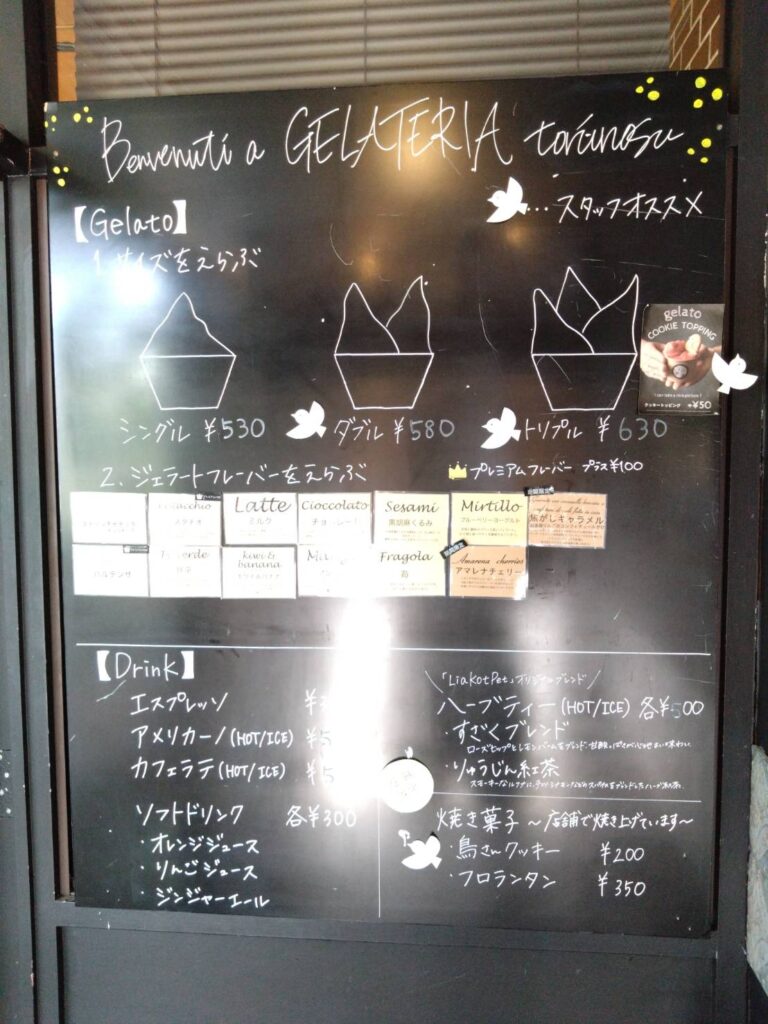 Benvenuti a GELATERIA torinosu
…スタッフオススメ
【Gelato】
1.サイズをえらぶ
gelato
COOKIE TOPPING
クッキートッピング +¥50
シングル ¥530
ダブル ¥580
トリプル ¥630
2.ジェラートフレーバーをえらぶ
プレミアムフレーバー プラス¥100
Latte
ミルク
Cioccolato
Sesami
黒胡麻くるみ
Mirtillo
ブルーベリーヨーグルト
焦がしキャラメル
kiwi & banana
Fragola
苺
Amarena cherries
アマレナチェリー
【Drink】
エスプレッソ
アメリカーノ(HOT/ICE) ¥5
カフェラテ(HOT/ICE) ¥5
ソフトドリンク 各¥300
・オレンジジュース
・りんごジュース
・ジンジャーエール
「LiaKotPet」オリジナルブレンド
ハーブティー(HOT/ICE) 各¥500
・すざくブレンド
・りゅうじん紅茶
焼き菓子 ～店舗で焼き上げています～
・鳥さんクッキー ¥200
・フロランタン ¥350